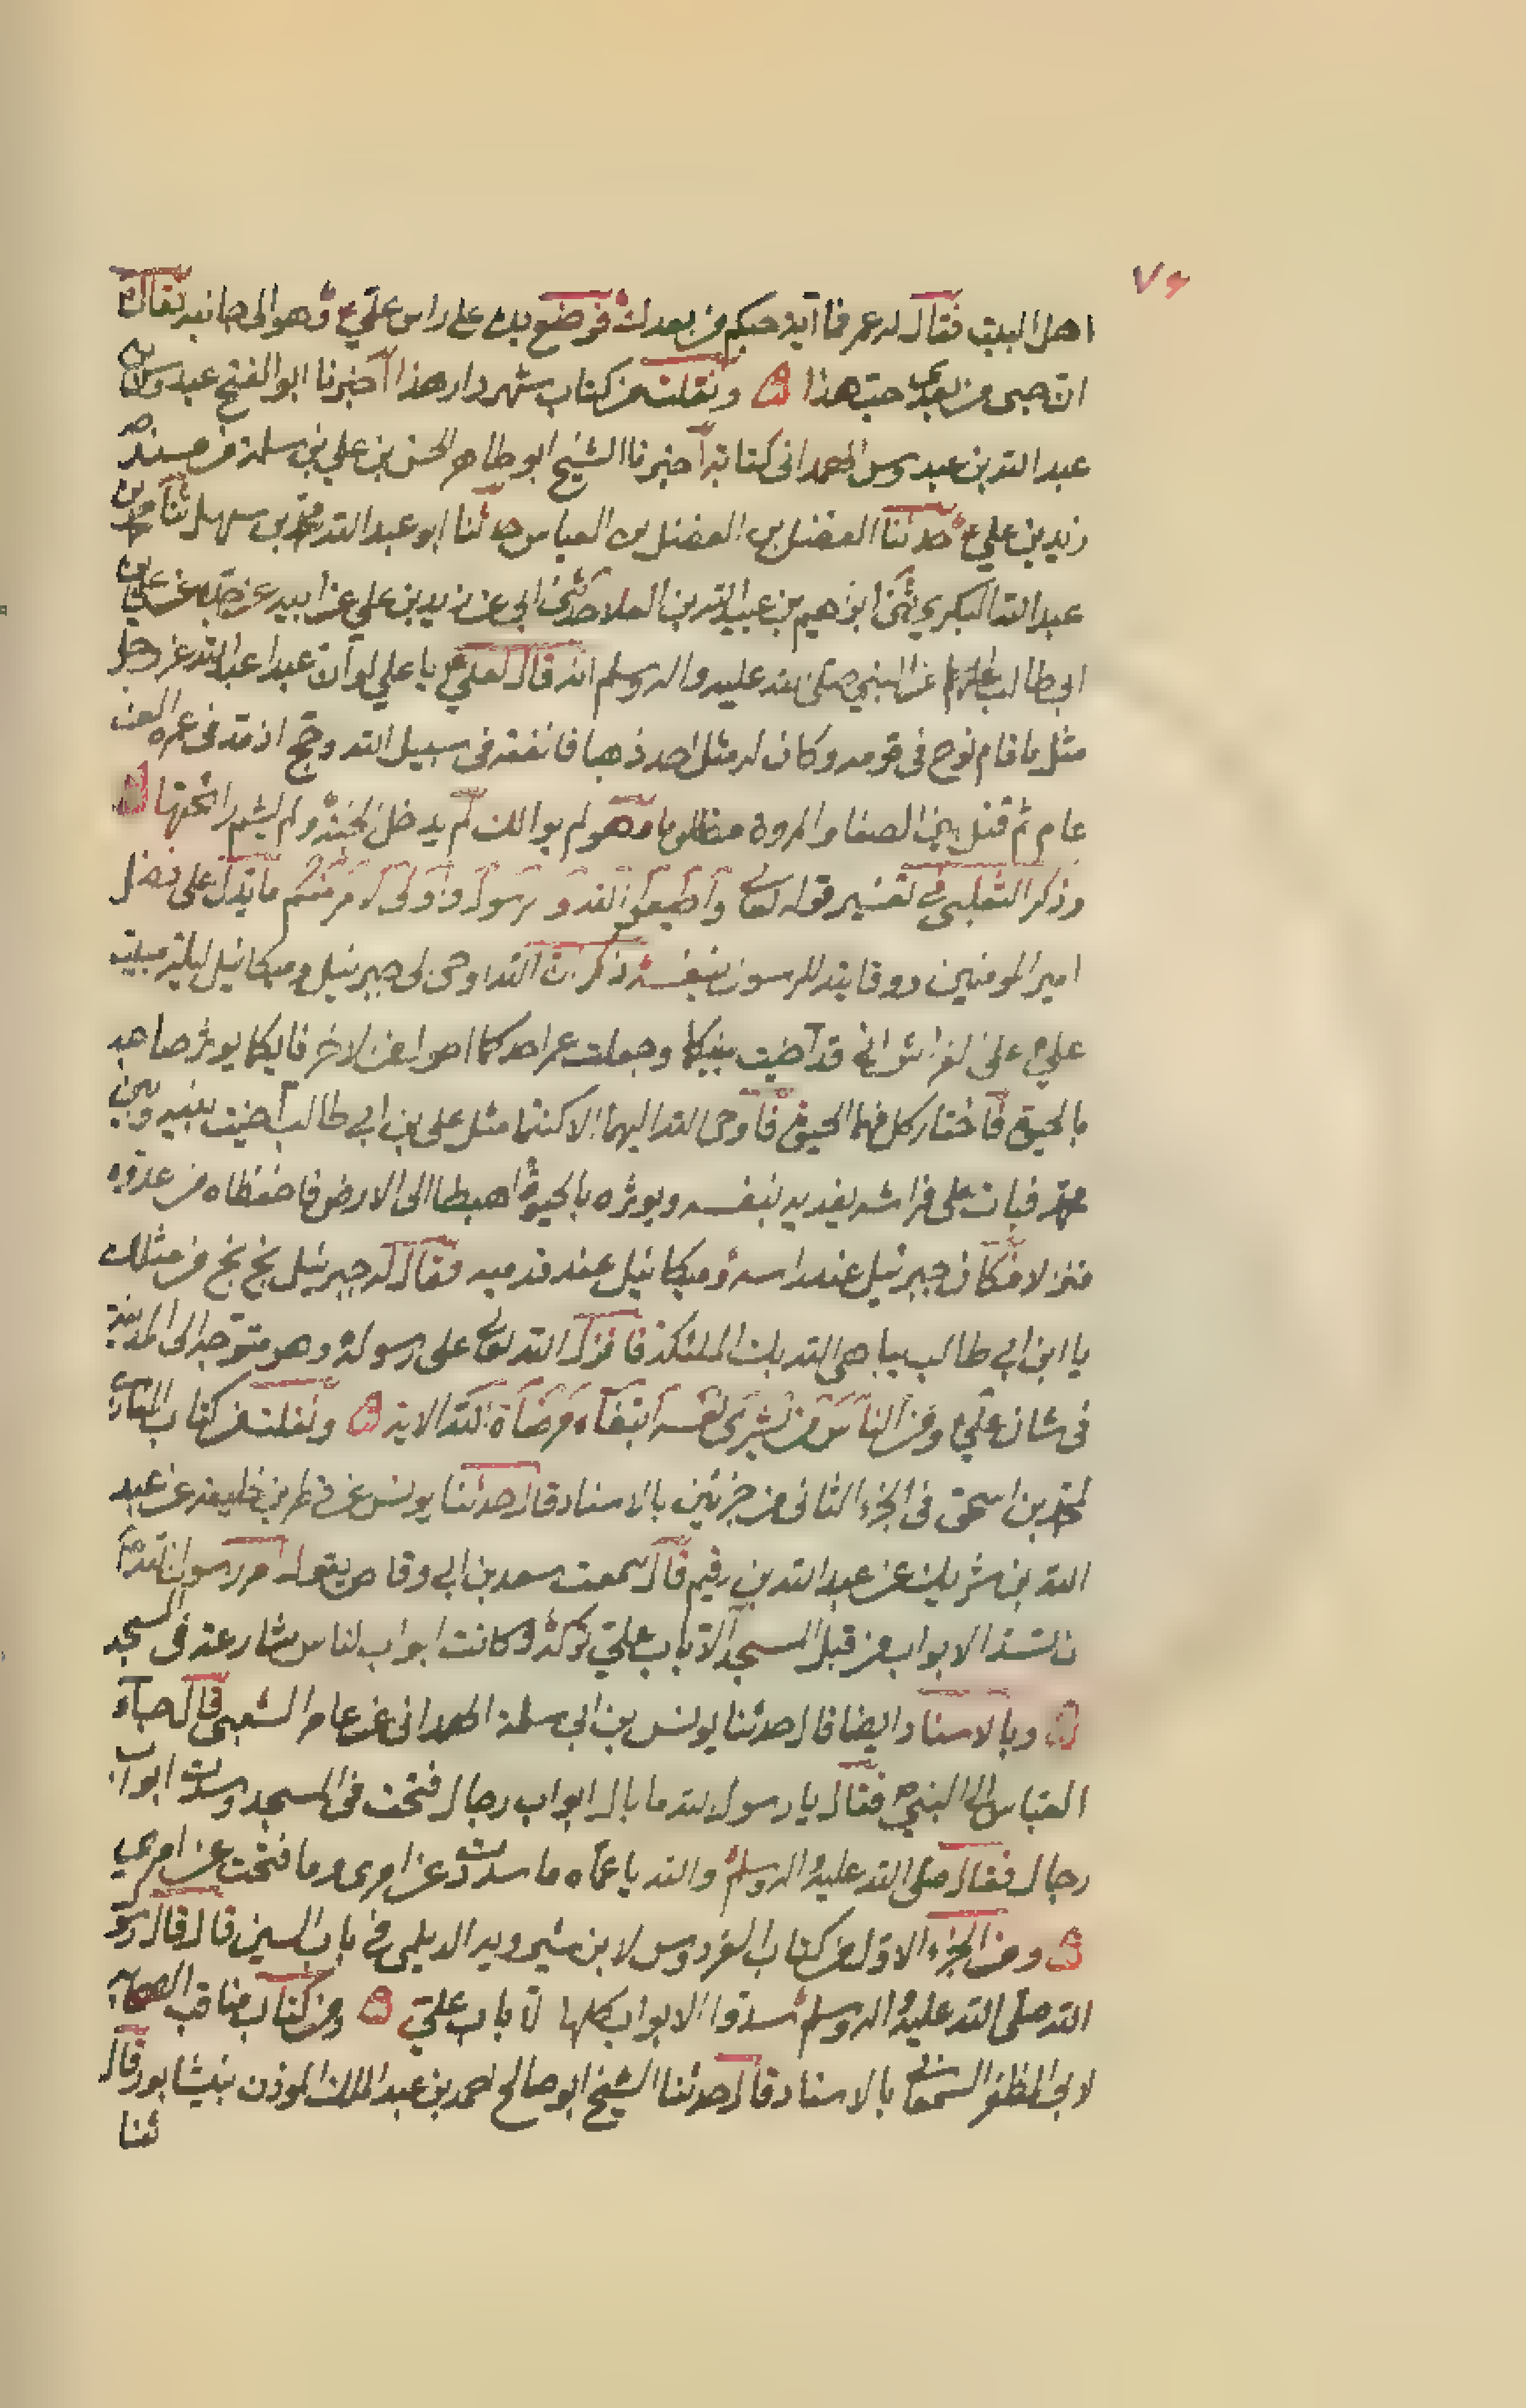 ٧٤
اهل البيت فقال له عمر فما آية حبكم من بعدك فوضع يده على راس علي ع وهو الى جانبه فقال
ان حبي من بعدي حب هذا ۞ ونقلت من كتاب شهردار هذا اخبرنا ابو الفتح عبدوس بن
عبد الله بن عبدوس الهمداني كتابة اخبرنا الشيخ ابو طاهر الحسن بن علي بن سلمة من مسند
زيد بن علي ع حدثنا الفضل بن الفضل بن العباس حدثنا ابو عبد الله محمد بن سهل ثنا محمد بن
عبد الله البكري ثنى ابرهيم بن عبيد الله بن العلا حدثني ابي عن زيد بن علي عن ابيه عن جده عن علي بن
ابي طالب عن النبي صلى الله عليه واله وسلم انه قال لعلي ع يا علي لو ان عبدا عبد الله عز وجل
مثل ما قام نوح في قومه وكان له مثل احد ذهبا فانفقه في سبيل الله وحج اذ مد في عمره الف
عام ثم قتل بين الصفا والمروة مظلوما وهو لم يوالك لم يدخل الجنة ولم يشم رائحتها ۞
وذكر الثعلبي في تفسير قوله تعالى واطيعوا الله و رسوله واولى الامر منكم ما يدل على فضل
امير المومنين ووقايته للرسول بنفسه ذكر ان الله اوحى الى جبرئيل وميكائيل ليلة مبيت
علي ع على الفراش اني قد آخيت بينكما وجعلت عمر احدكما اطول من الاخر فايكما يوثر صاحبه
بالحيوة فاختار كل منهما الحيوة فاوحى الله اليهما الا كنتما مثل علي بن ابي طالب آخيت بينه وبين
محمد فبات على فراشه يفديه بنفسه ويوثره بالحيوة اهبطا الى الارض فاحفظاه من عدوه
فنزلا فكان جبرئيل عند راسه وميكائيل عند قدميه فقال له جبرئيل بخ بخ من مثلك
يا ابن ابي طالب يباهي الله بك الملئكة فانزل الله تعالى على رسوله وهو متوجه الى المدينة
في شان علي ع ومن الناس من يشري نفسه ابتغاء مرضاة الله الاية ۞ ونقلت من كتاب المغازي
لمحمد بن اسحق في الجزء الثاني من جزئين بالاسناد قال حدثنا يونس عن فطر بن خليفة عن عبد
الله بن شريك عن عبد الله بن رقيم قال سمعت سعد بن ابي وقاص يقول امر رسول الله ص
بسد الابواب من قبل المسجد الا باب علي تركه وكانت ابواب الناس شارعة في المسجد
۞ وبالاسناد ايضا قال حدثنا يونس بن ابي سلمة الهمداني عن عامر الشعبي قال جاء
العباس الى النبي ص فقال يا رسول الله ما بال ابواب رجال فتحت في المسجد وسددت ابواب
رجال فقال صلى الله عليه واله وسلم والله يا عماه ما سددت عن امري وما فتحت عن امري
۞ ومن الجزء الاول من كتاب الفردوس لابن شيرويه الديلمي في باب السين قال قال رسو
الله صلى الله عليه واله وسلم سدوا الابواب كلها الا باب علي ۞ ومن كتاب مناقب الصحابة
لابي المظفر السمعاني بالاسناد قال حدثنا الشيخ ابو صالح احمد بن عبد الملك الموذن بنيشابور قال
ثنا